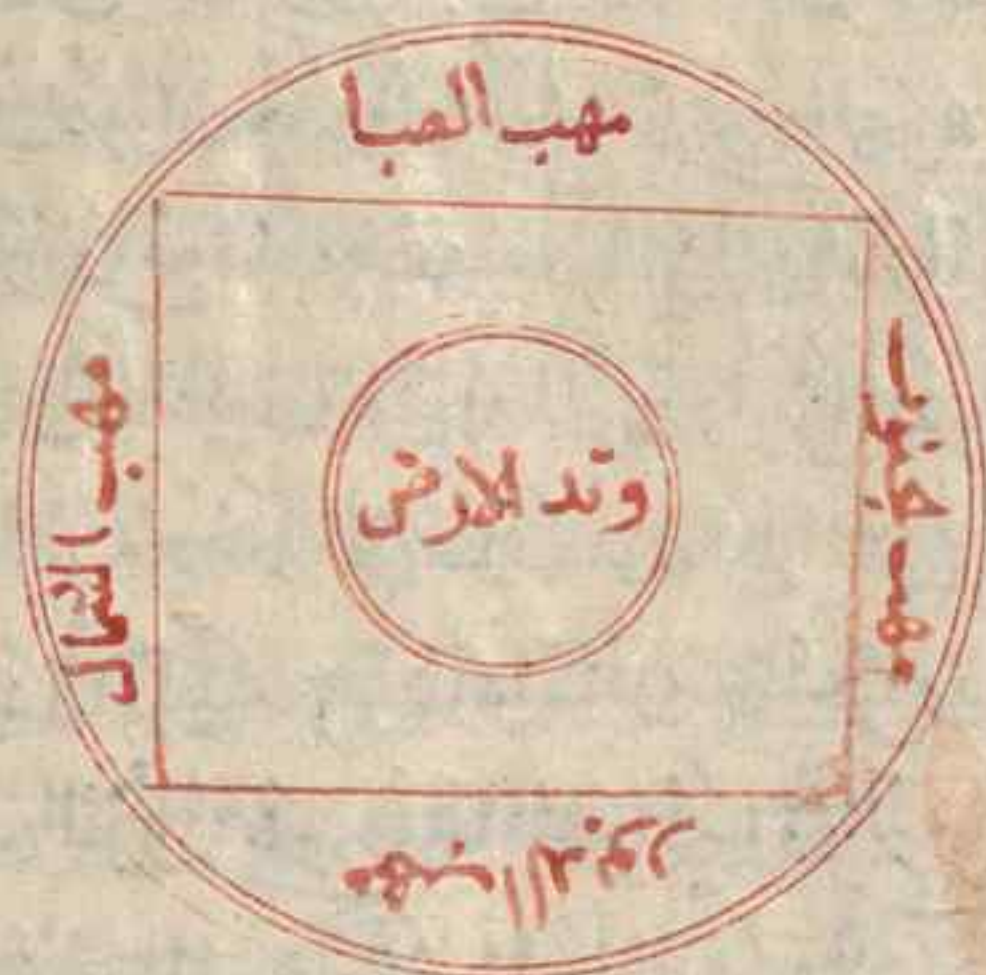 مهب الصبا
مهب جنوب
وتد الارض
مهب الشمال
مهب الدبور